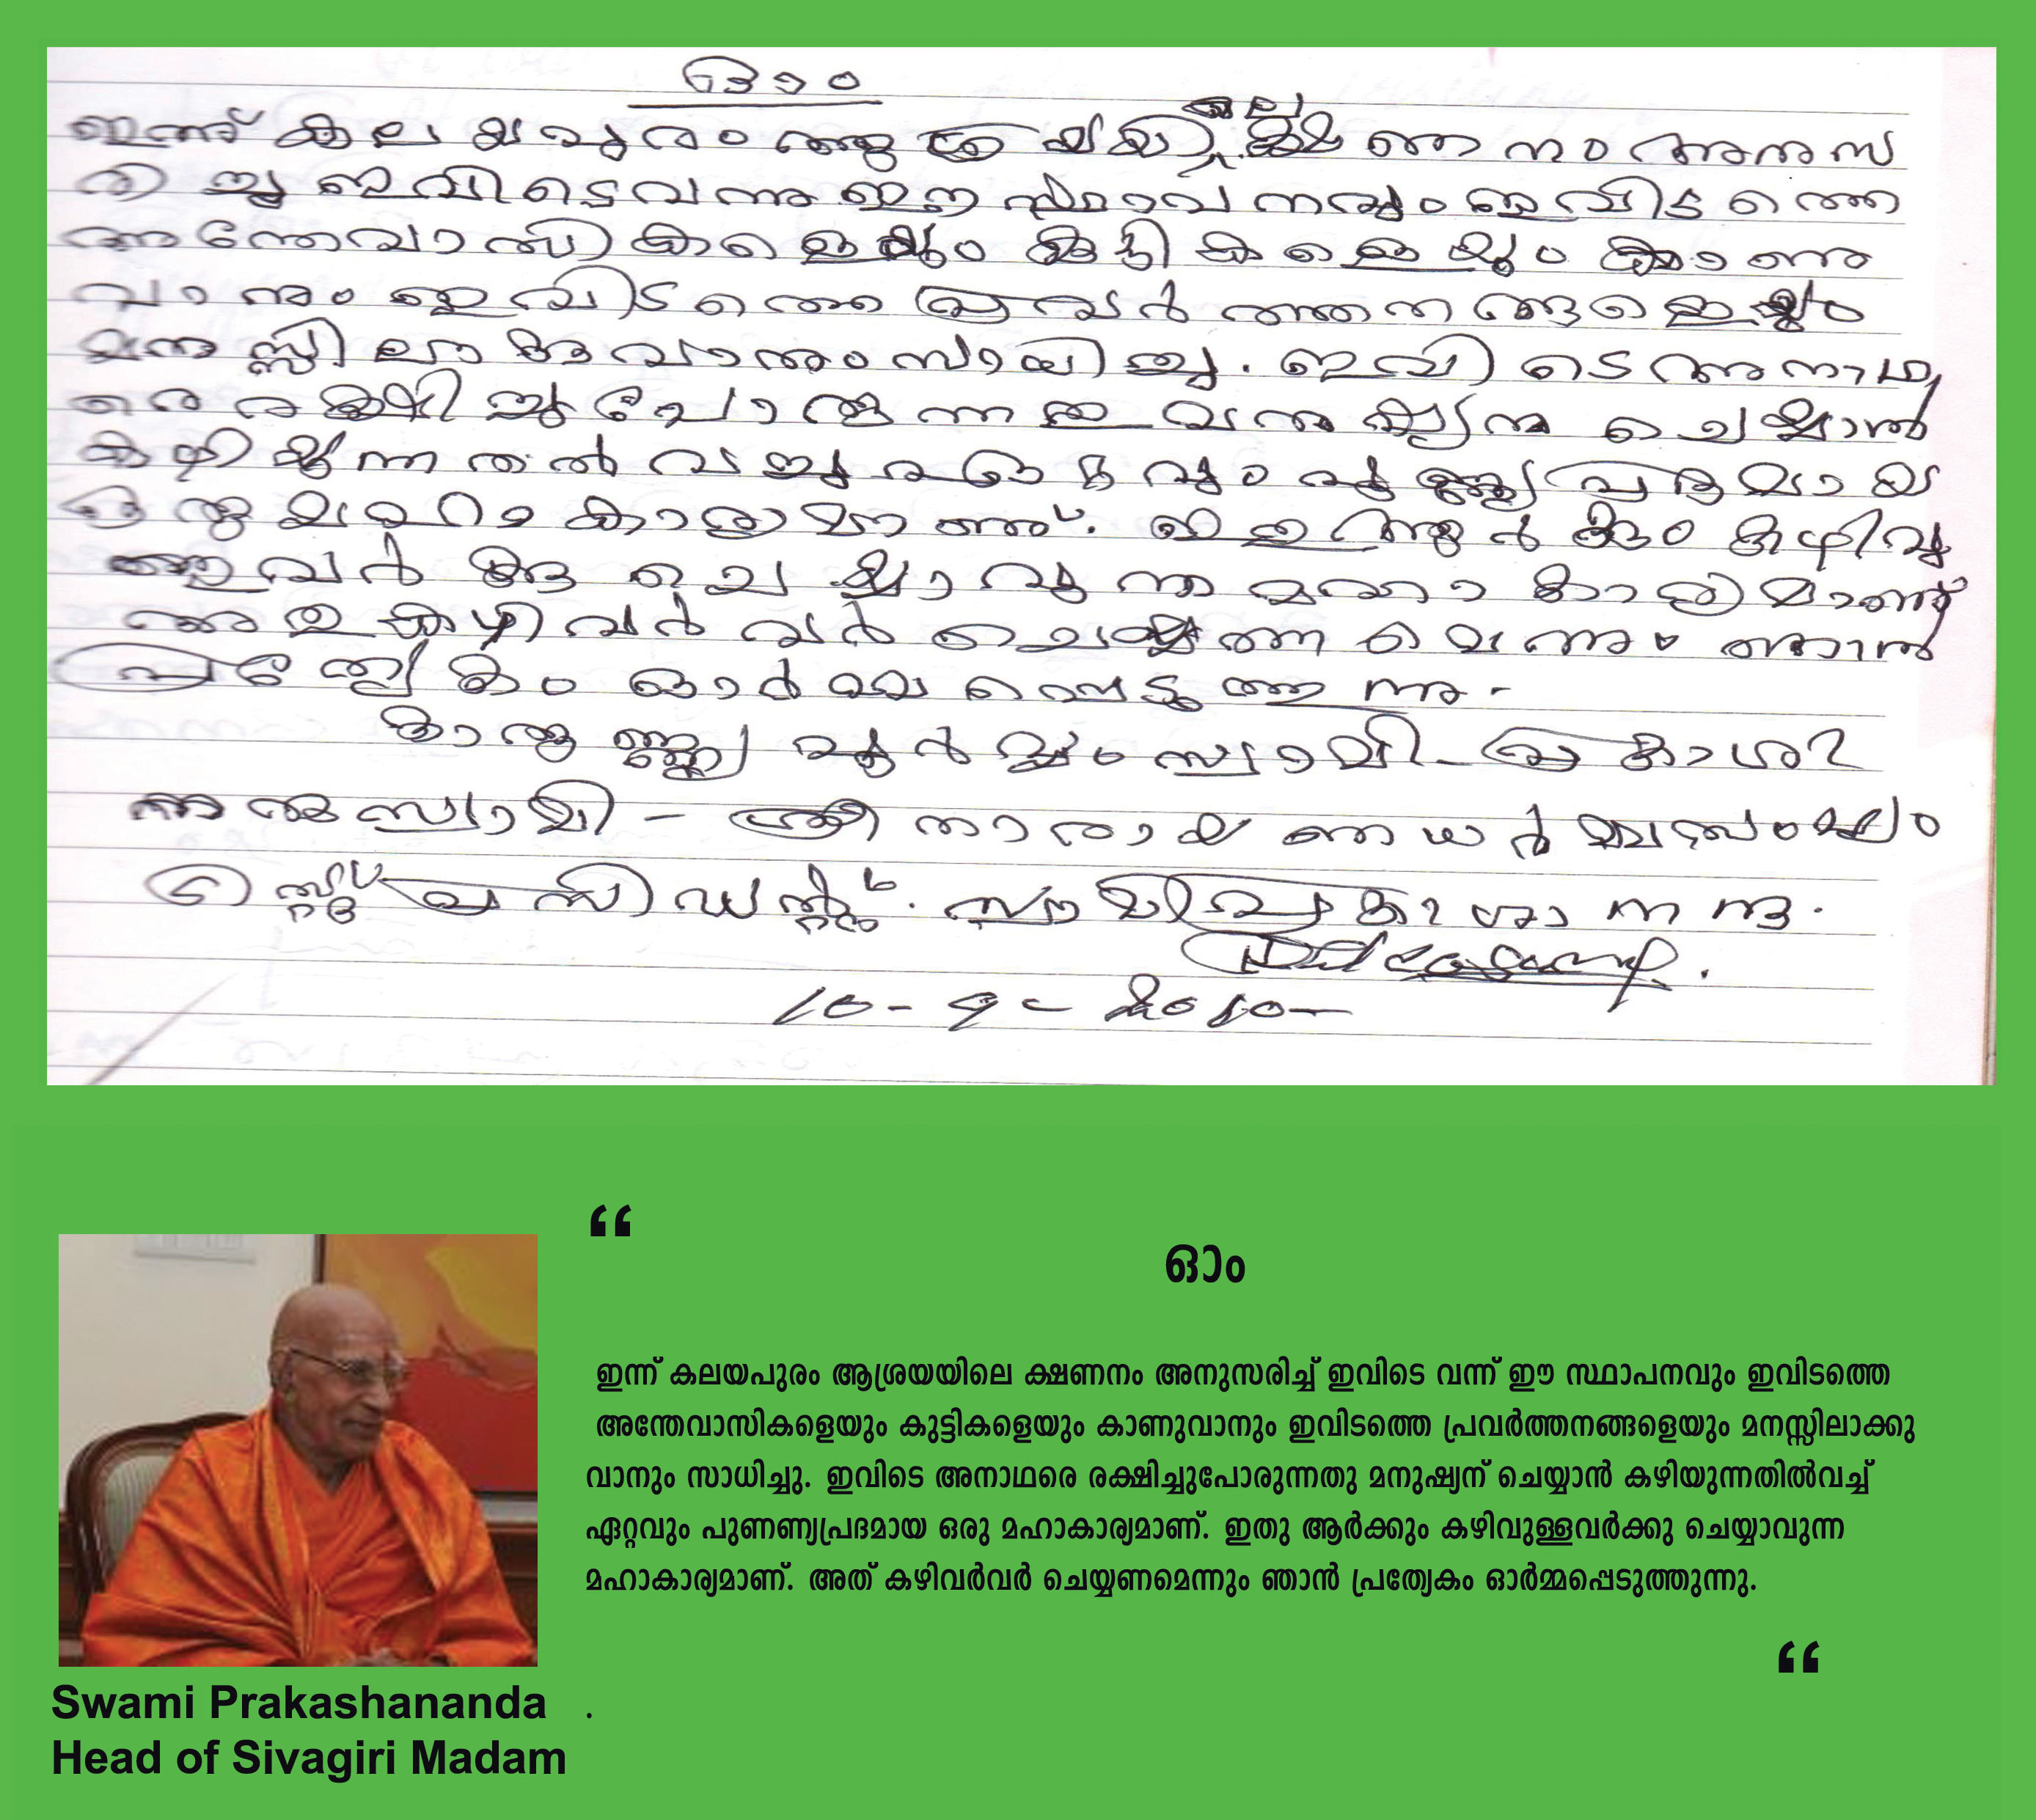 ഓം
ഇന്ന് കലയപുരം ആശ്രയയിലെ ക്ഷണനം അനുസ
രിച്ചു ഇവിടെ വന്നു ഈ സ്ഥാപനവും ഇവിടത്തെ
അന്തേവാസികളെയും കുട്ടികളെയും കാണു
വാനും ഇവിടത്തെ പ്രവർത്തനങ്ങളെയും
മനസ്സിലാക്കുവാനും സാധിച്ചു. ഇവിടെ അനാഥ
രെ രക്ഷിച്ചു പോരുന്നതു മനുഷ്യനു ചെയ്യാൻ
കഴിയുന്നതിൽ വച്ചു ഏറ്റവും പുണ്ണ്യപ്രദമായ
ഒരു മഹാകാര്യമാണ്. ഇതു ആർക്കും കഴിവു
ള്ളവർക്കു ചെയ്യാവുന്ന മഹാകാര്യമാണ്
അതു കഴിവർവർ ചെയ്യണമെന്നും ഞാൻ
പ്രത്യേകം ഓർമ്മപ്പെടുത്തുന്നു.
സ്വാമി പ്രകാശാ
നന്ദസ്വാമി - ശ്രീനാരായണധർമ്മസംഘം
ട്രസ്റ്റ് പ്രസിഡന്റ്. സ്വാമി പ്രകാശാനന്ദ.
10-9-2010-
“
ഓം
ഇന്ന് കലയപുരം ആശ്രയയിലെ ക്ഷണനം അനുസരിച്ച് ഇവിടെ വന്ന് ഈ സ്ഥാപനവും ഇവിടത്തെ
അന്തേവാസികളെയും കുട്ടികളെയും കാണുവാനും ഇവിടത്തെ പ്രവർത്തനങ്ങളെയും മനസ്സിലാക്കു
വാനും സാധിച്ചു. ഇവിടെ അനാഥരെ രക്ഷിച്ചുപോരുന്നതു മനുഷ്യന് ചെയ്യാൻ കഴിയുന്നതിൽവച്ച്
ഏറ്റവും പുണണ്യപ്രദമായ ഒരു മഹാകാര്യമാണ്. ഇതു ആർക്കും കഴിവുള്ളവർക്കു ചെയ്യാവുന്ന
മഹാകാര്യമാണ്. അത് കഴിവർവർ ചെയ്യണമെന്നും ഞാൻ പ്രത്യേകം ഓർമ്മപ്പെടുത്തുന്നു.
“
Swami Prakashananda .
Head of Sivagiri Madam